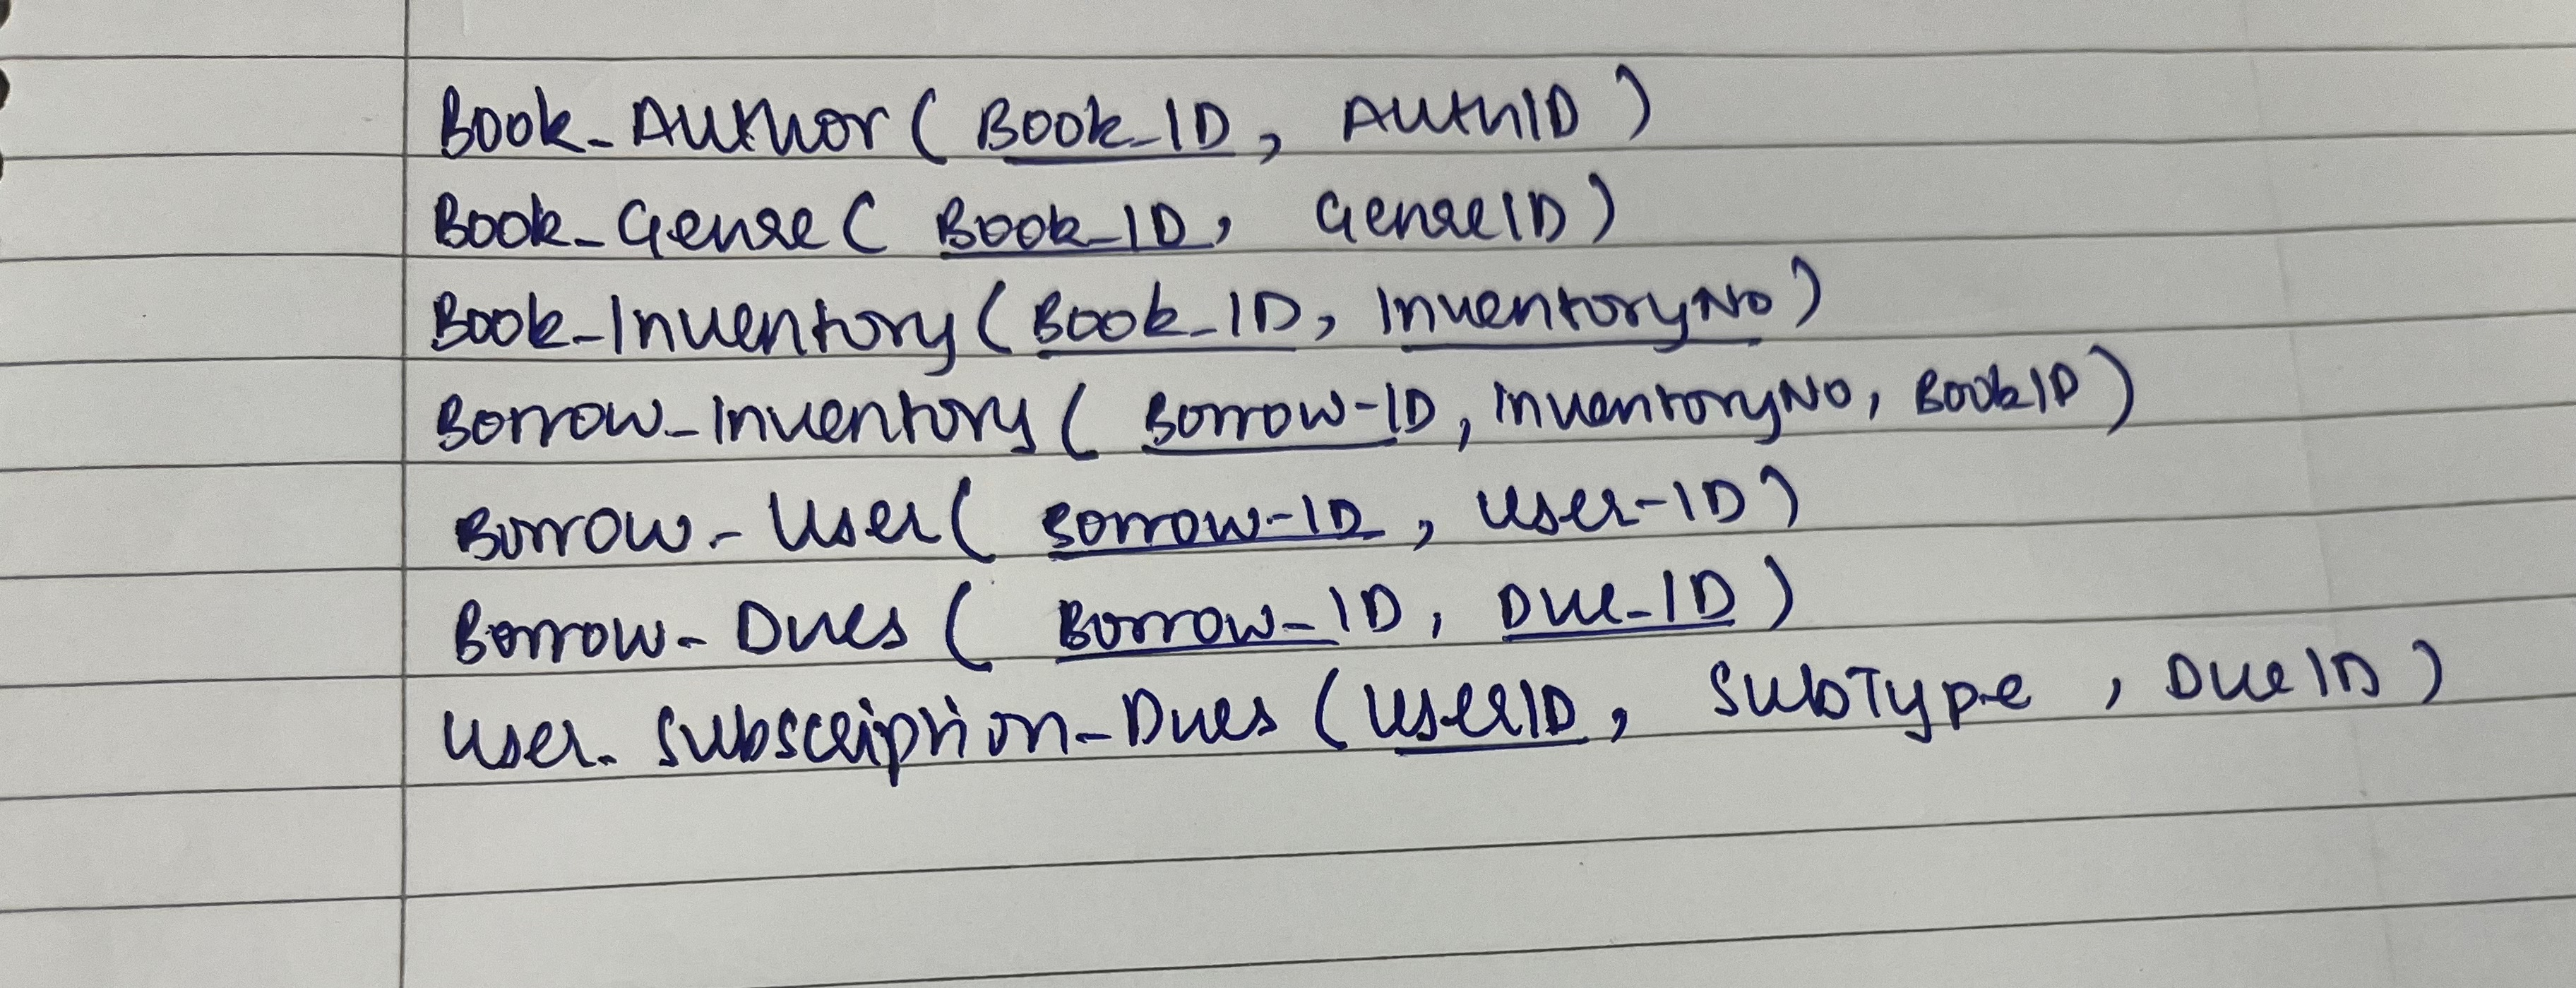 Book_Author ( Book_ID, AuthID )
Book_Genre ( Book_ID, GenreID )
Book_Inventory ( Book_ID, InventoryNo )
Borrow_Inventory ( Borrow-ID, InventoryNo, BookID )
Borrow - User ( Borrow-ID, User-ID )
Borrow - Dues ( Borrow_ID, Due_ID )
User_Subscription_Dues ( UserID, SubType, DueID )